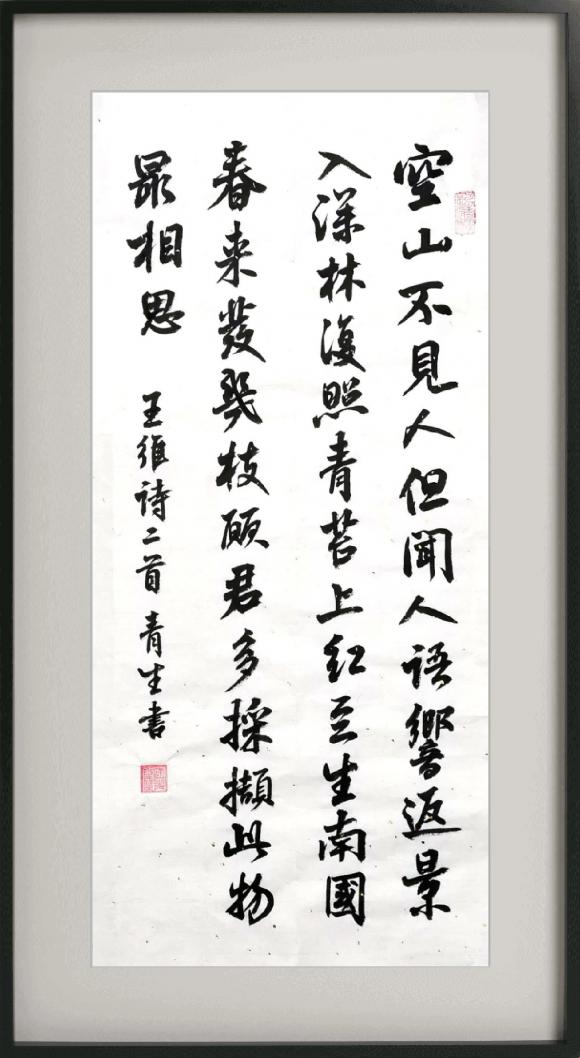 空山不見人但聞人語響返景
入深林復照青苔上紅豆生南國
春来發幾枝願君多採擷此物
最相思
王維詩二首 青生書